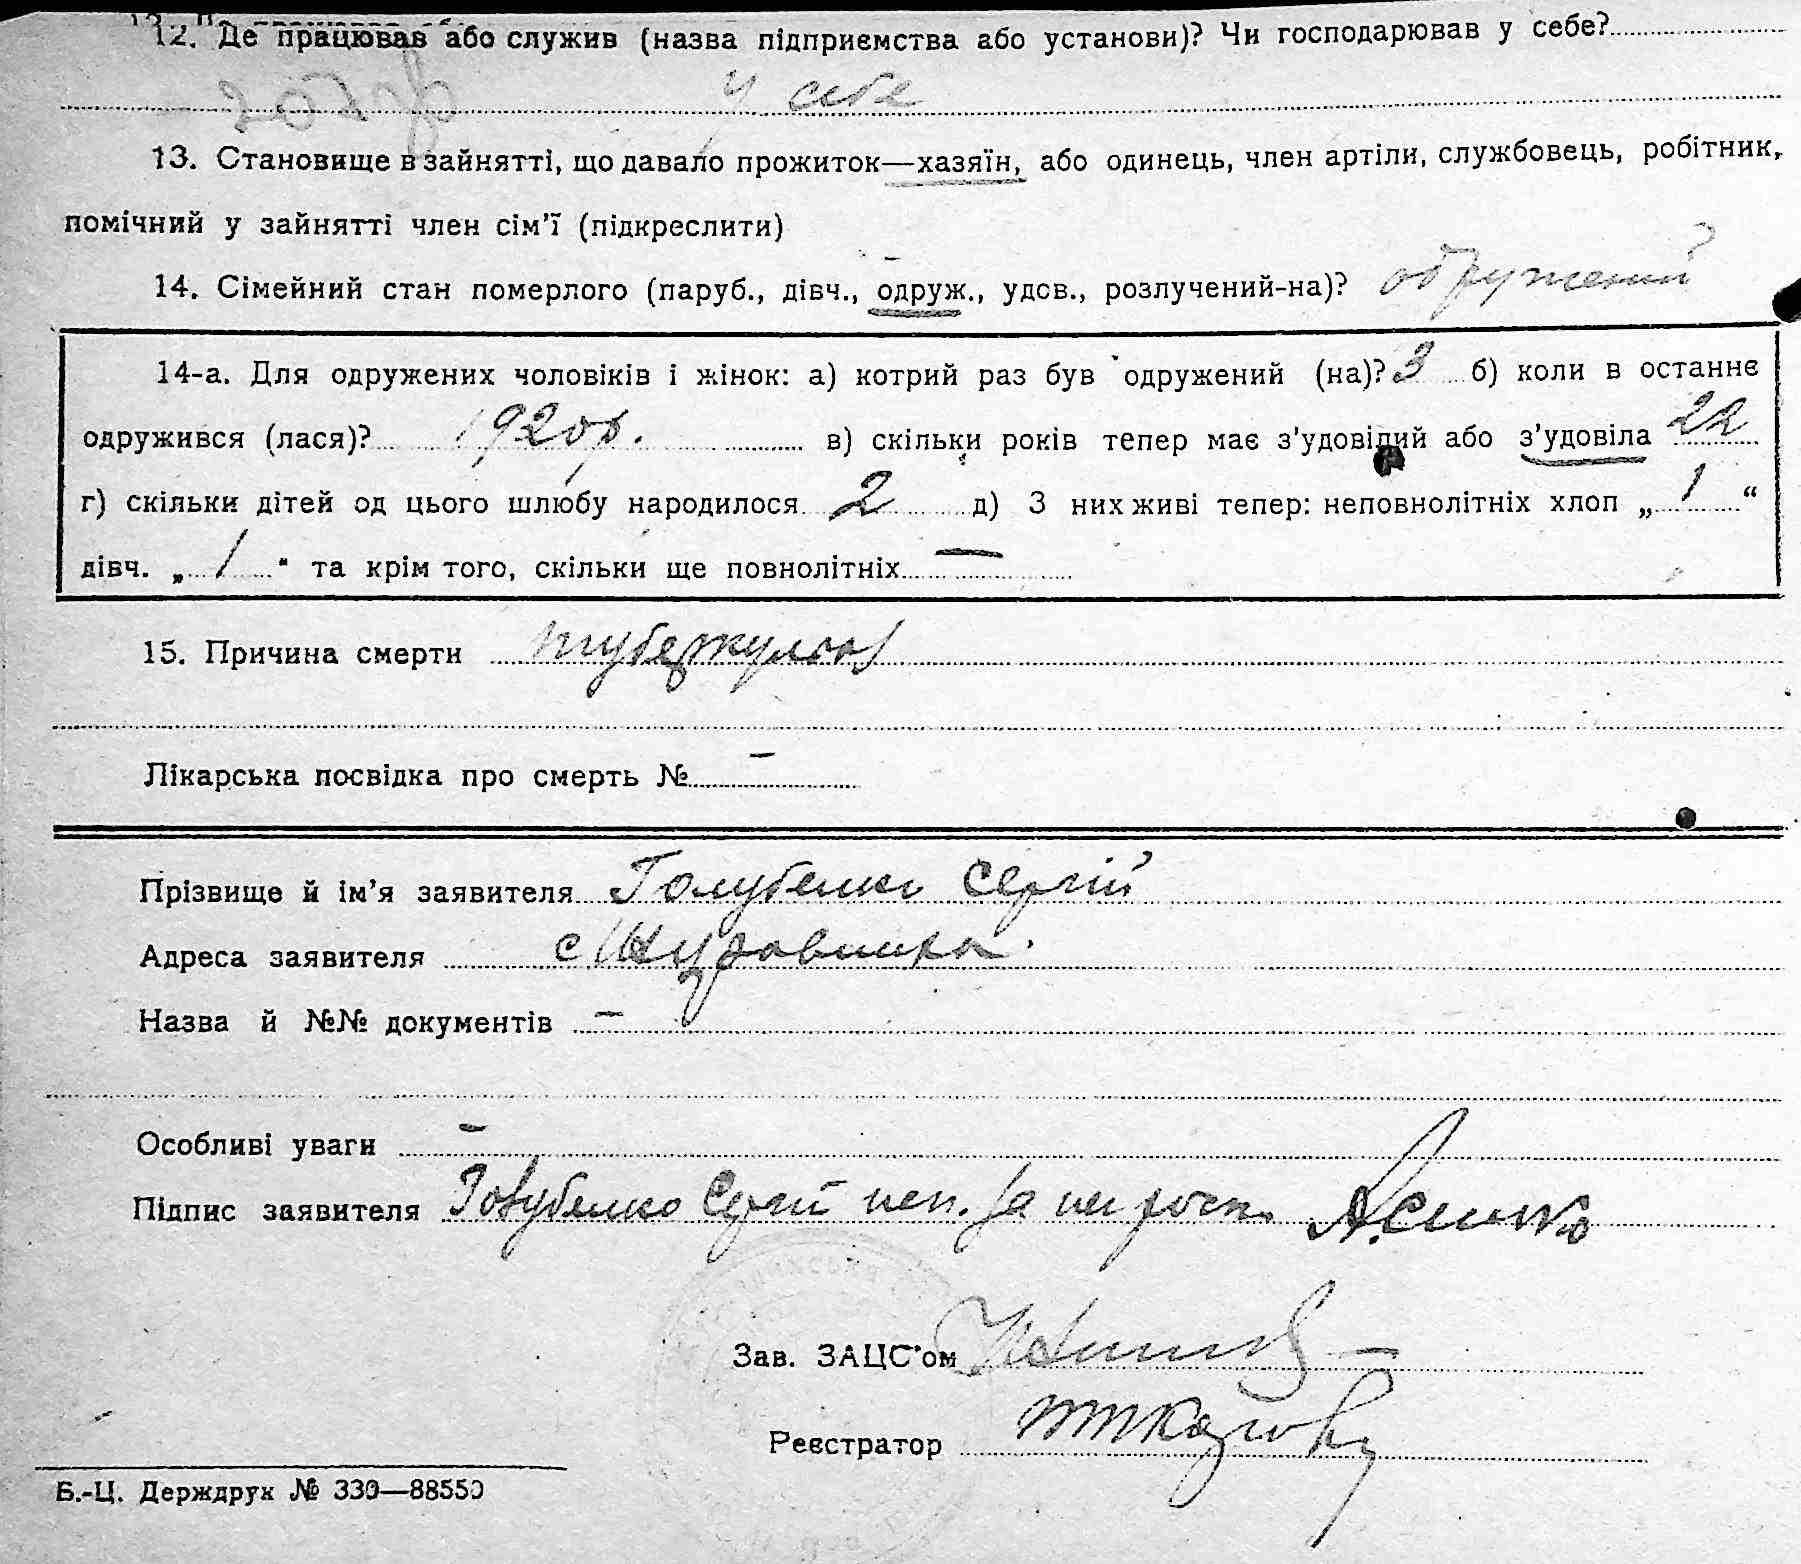 12. Де працював або служив (назва підприємства або установи)? Чи господарював у себе?
у себе
13. Становище в зайнятті, що давало прожиток—хазяїн, або одинець, член артіли, службовець, робітник,
помічний у зайнятті член сім'ї (підкреслити)
14. Сімейний стан померлого (паруб., дівч., одруж., удов., розлучений-на)? одружений
14-а. Для одружених чоловіків і жінок: а) котрий раз був одружений (на)? 3 б) коли в останнє
одружився (лася)? 1920 р. в) скільки років тепер має з'удовілий або з'удовіла 22
г) скільки дітей од цього шлюбу народилося 2 д) З них живі тепер: неповнолітніх хлоп „ 1 “
дівч. „ 1 “ та крім того, скільки ще повнолітніх —
15. Причина смерти туберкульоз
Лікарська посвідка про смерть № —
Прізвище й ім'я заявителя Голубенко Сергій
Адреса заявителя с Журавлиха
Назва й №№ документів —
Особливі уваги —
Підпис заявителя Голубенко Сергій неп. за не росп.
Зав. ЗАЦС'ом
Реєстратор
Б.-Ц. Держдрук № 330—88550